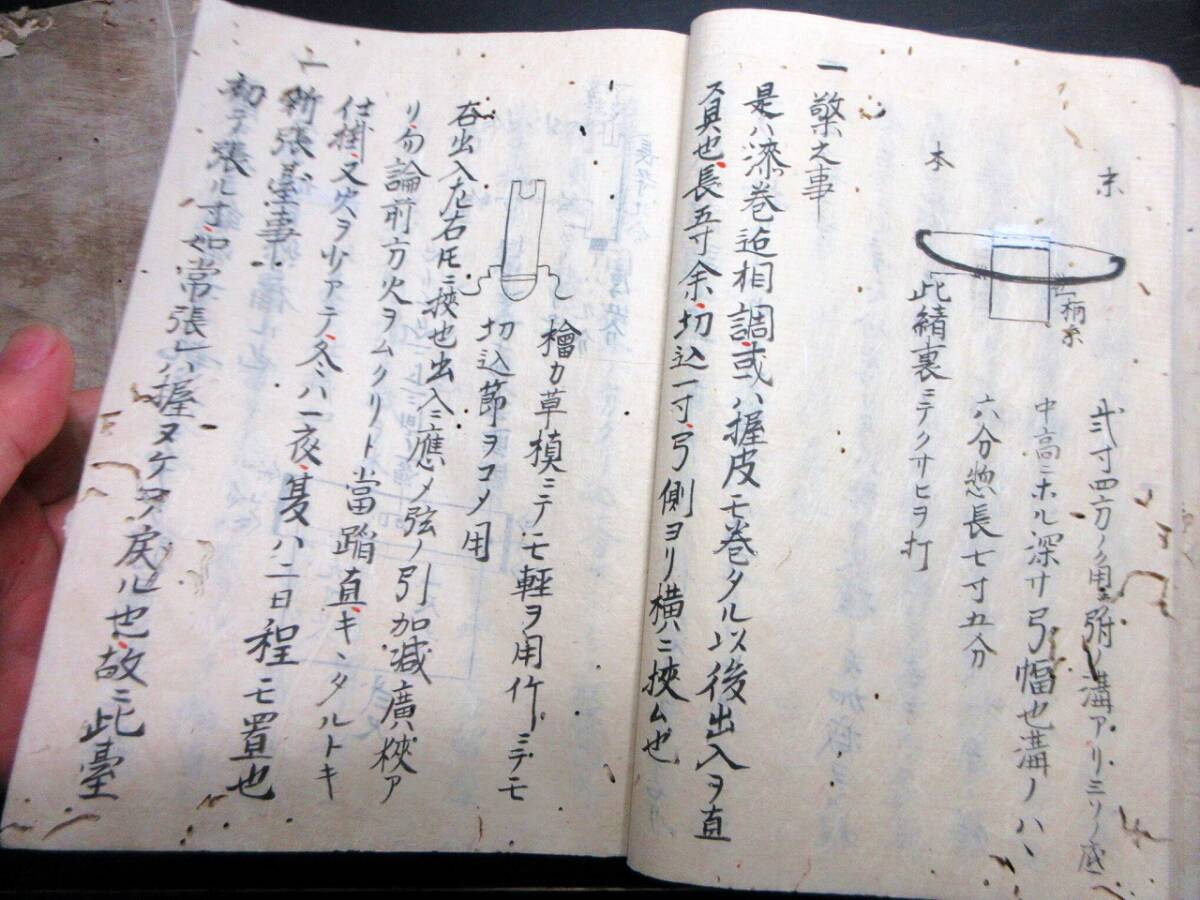 末
本
柄糸
弐寸四方ノ角ニ弣ノ溝アリミソノ底
中高ニホル深サ弓幅也溝ノハヽ
六分惣長七寸五分
此緒裏ニテクサヒヲ打
一 檠之事
是ハ漆巻迠相調或ハ握皮モ巻タル以後出入ヲ直
ス具也長五寸余切込一寸弓側ヨリ横ニ挾ム也
檜カ草槙ニテモ軽ヲ用竹ニテモ
切込節ヲコメ用
右出入左右圧ニ挾也出入ニ應メ弦ノ引加減廣挾ア
リ勿論前方火ヲムクリト當踏直キヽタルトキ
仕掛又火ヲ少アテ冬ハ一夜夏ハ二日程モ置也
一 新張臺事
初テ張ル寸如常張レハ握ヌケテ戻ル也故ニ此臺